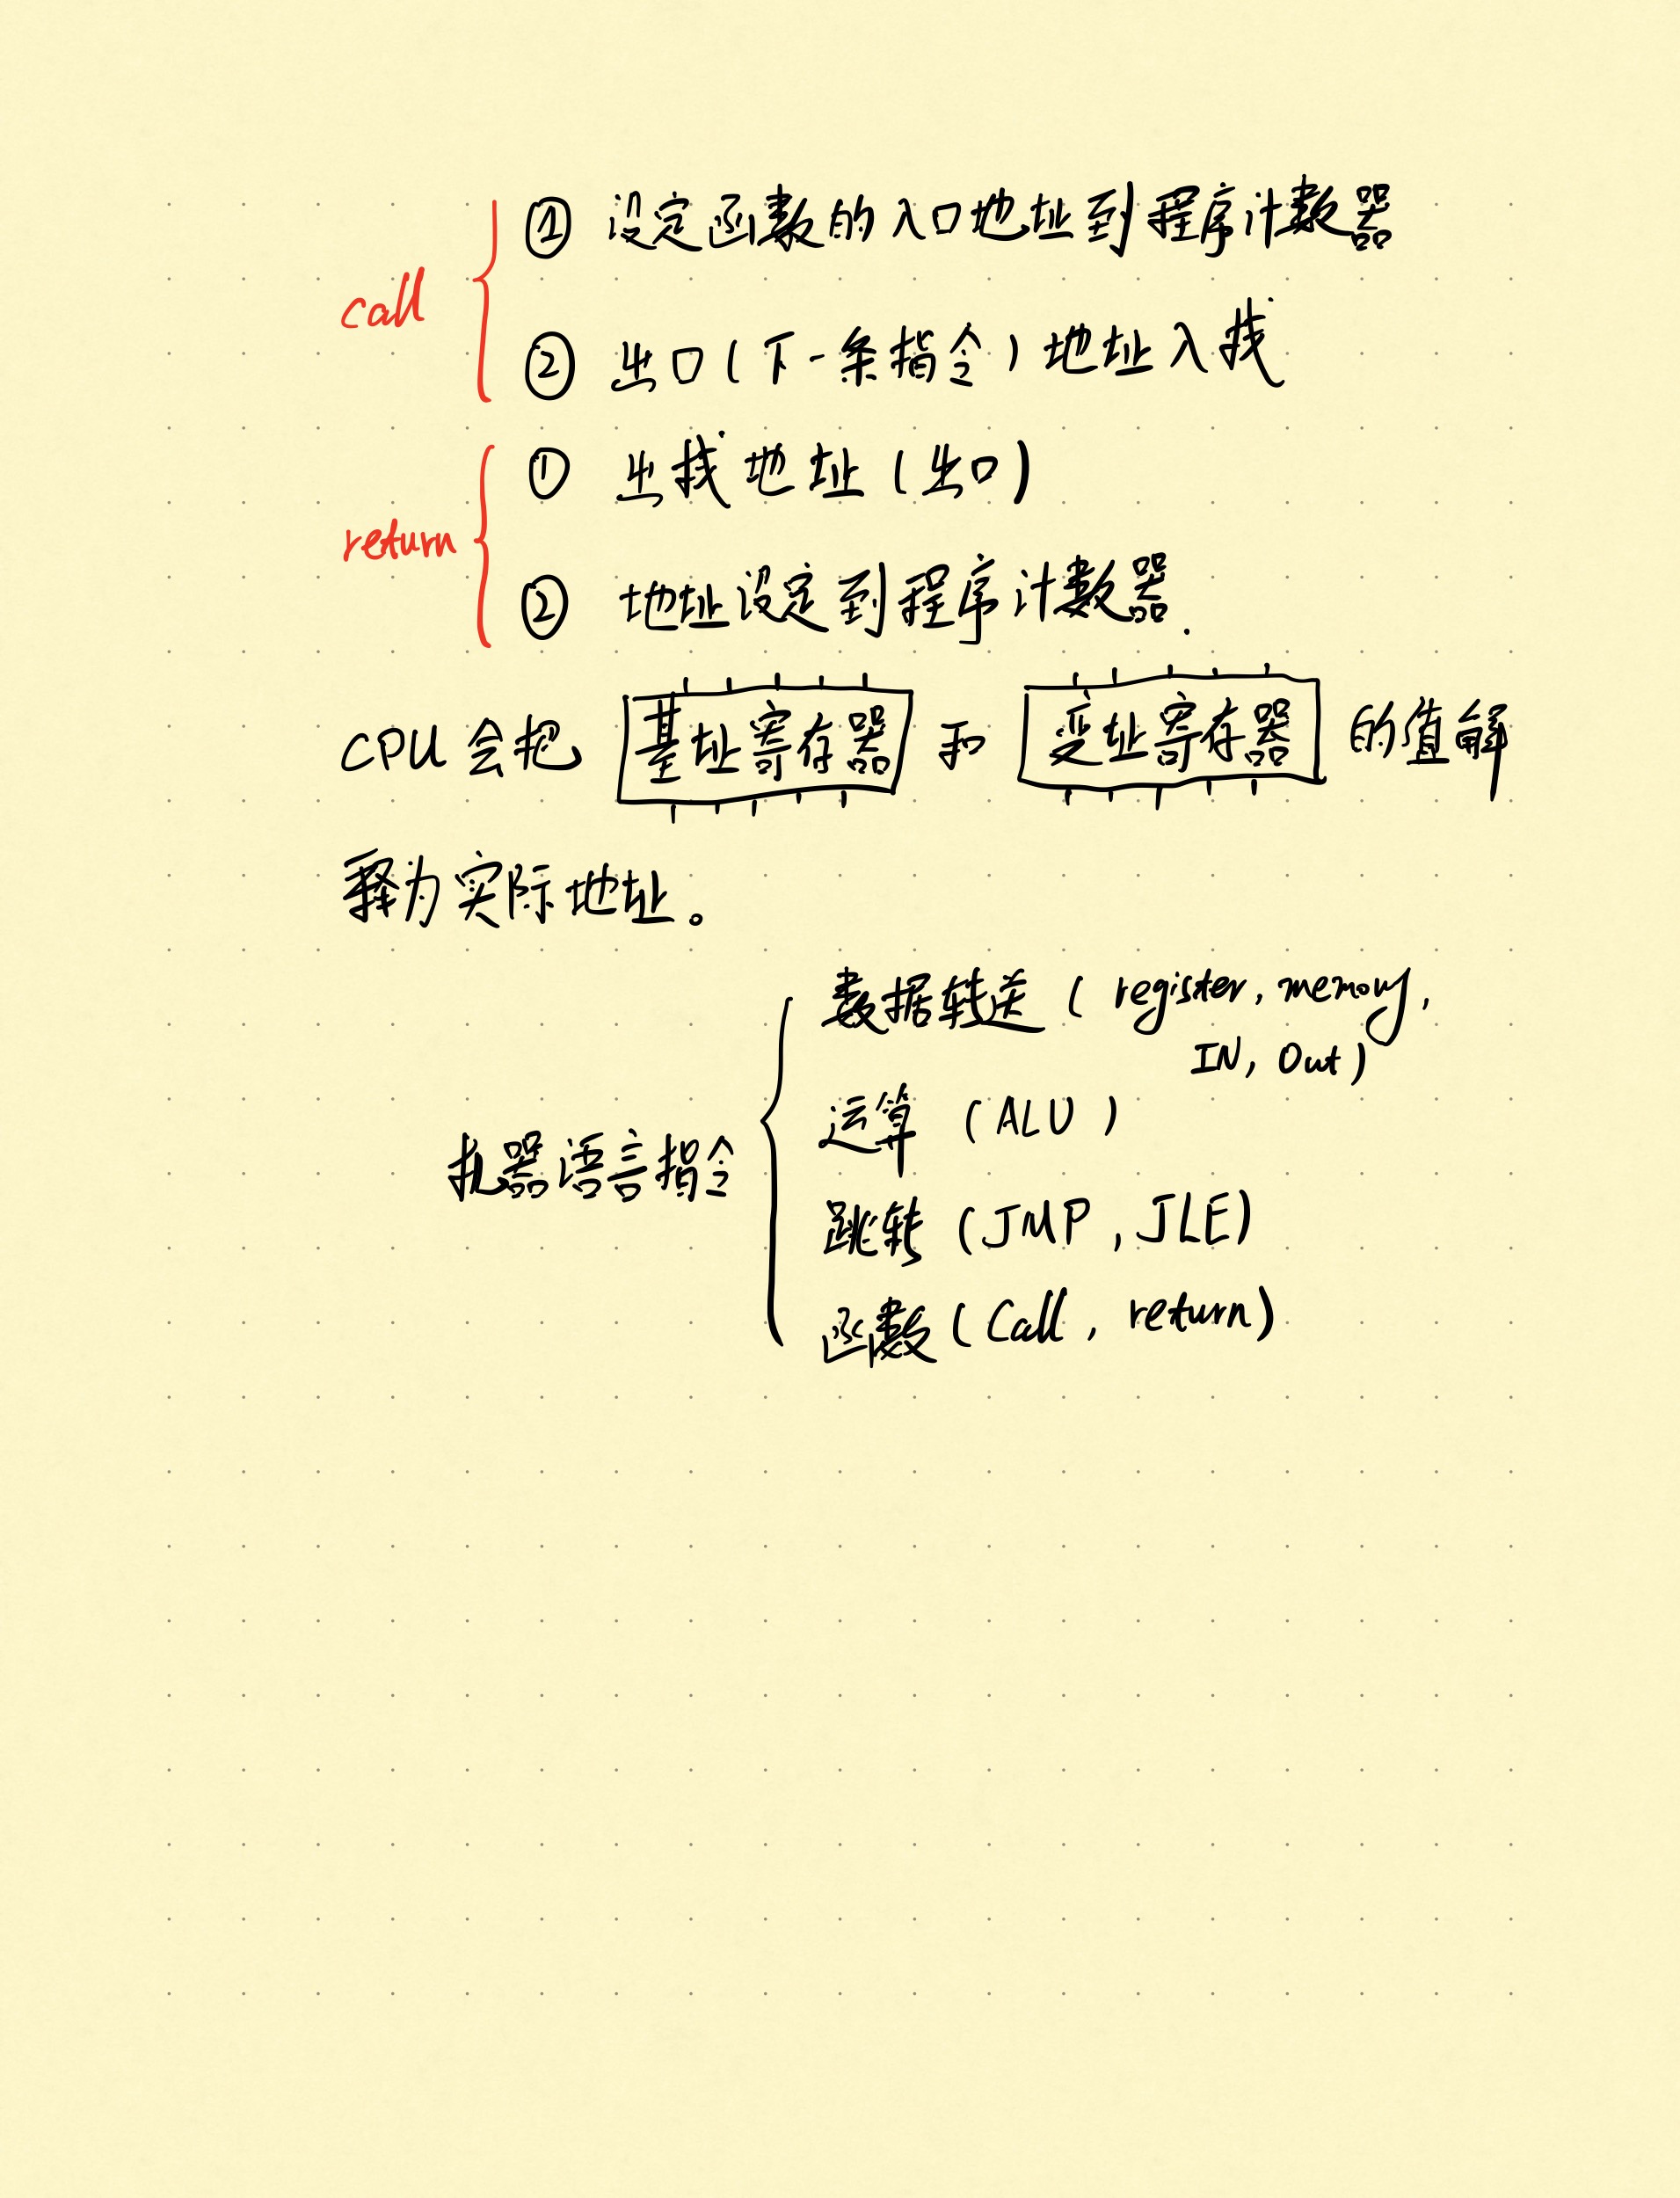 call
① 设定函数的入口地址到程序计数器
② 出口(下一条指令)地址入栈
return
① 出栈地址(出口)
② 地址设定到程序计数器.
CPU会把 基址寄存器 和 变址寄存器 的值解
释为实际地址。
机器语言指令
数据转送 ( register, memory,
IN, Out)
运算 (ALU)
跳转 (JMP, JLE)
函数 (Call, return)